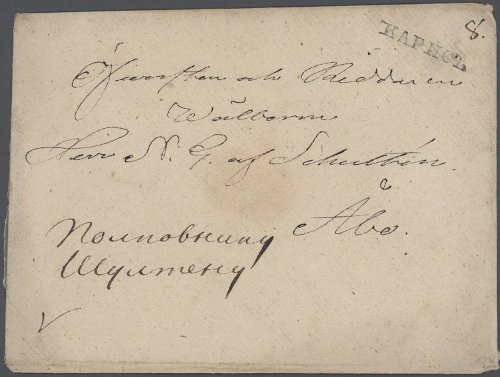 8.
КАРИСЪ
Öfwersten och Riddaren
Wälborne
Herr N. G. af Schultén.
Åbo.
Полковнику
Шултену